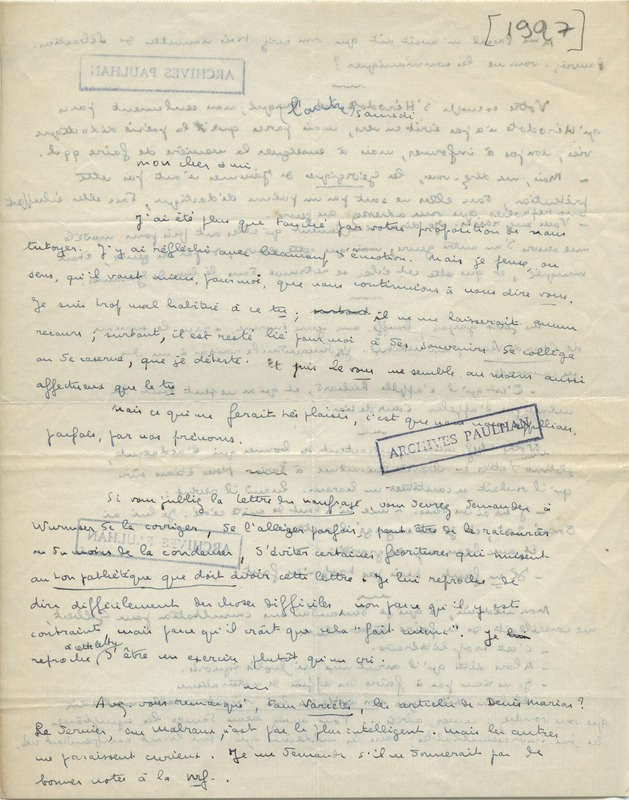 [1997]
ARCHIVES PAULHAN
(l'autre) samedi
mon cher ami.
J'ai été plus que touché par votre proposition de nous
tutoyer. J'y ai réfléchi avec beaucoup d'émotion. Mais je pense, au
sens, qu'il vaut mieux, pour moi, que nous continuions à nous dire vous.
Je suis trop mal habitué à ce tu ; surtout il ne me laisserait aucun
recours ; surtout, il est resté lié pour moi à des souvenirs de collège
ou de caserne, que je déteste. Et puis le vous me semble au moins aussi
affectueux que le tu
Mais ce qui me ferait très plaisir, c'est que nous nous appelions
parfois, par nos prénoms.
ARCHIVES PAULHAN
Si vous publiez la lettre du naufragé vous devrez demander à
Wurmser de la corriger, de l'alléger parfois, peut-être de la raccourcir
ou du moins de la condenser, d'éviter certaines fioritures qui nuisent
au ton pathétique que doit avoir cette lettre. Je lui reproche de
dire difficilement des choses difficiles, non parce qu'il y est
contraint mais parce qu'il croit que cela "fait mieux". Je lui
reproche à cette lettre d'être un exercice plutôt qu'un cri.
ARCHIVES PAULHAN
Avez-vous remarqué, dans Variétés, les articles de Denis Marion?
Le dernier, sur Malraux, n'est pas le plus intelligent. mais les autres
me paraissent curieux. Je me demande s'il ne donnerait pas de
bonnes notes à la nrf.